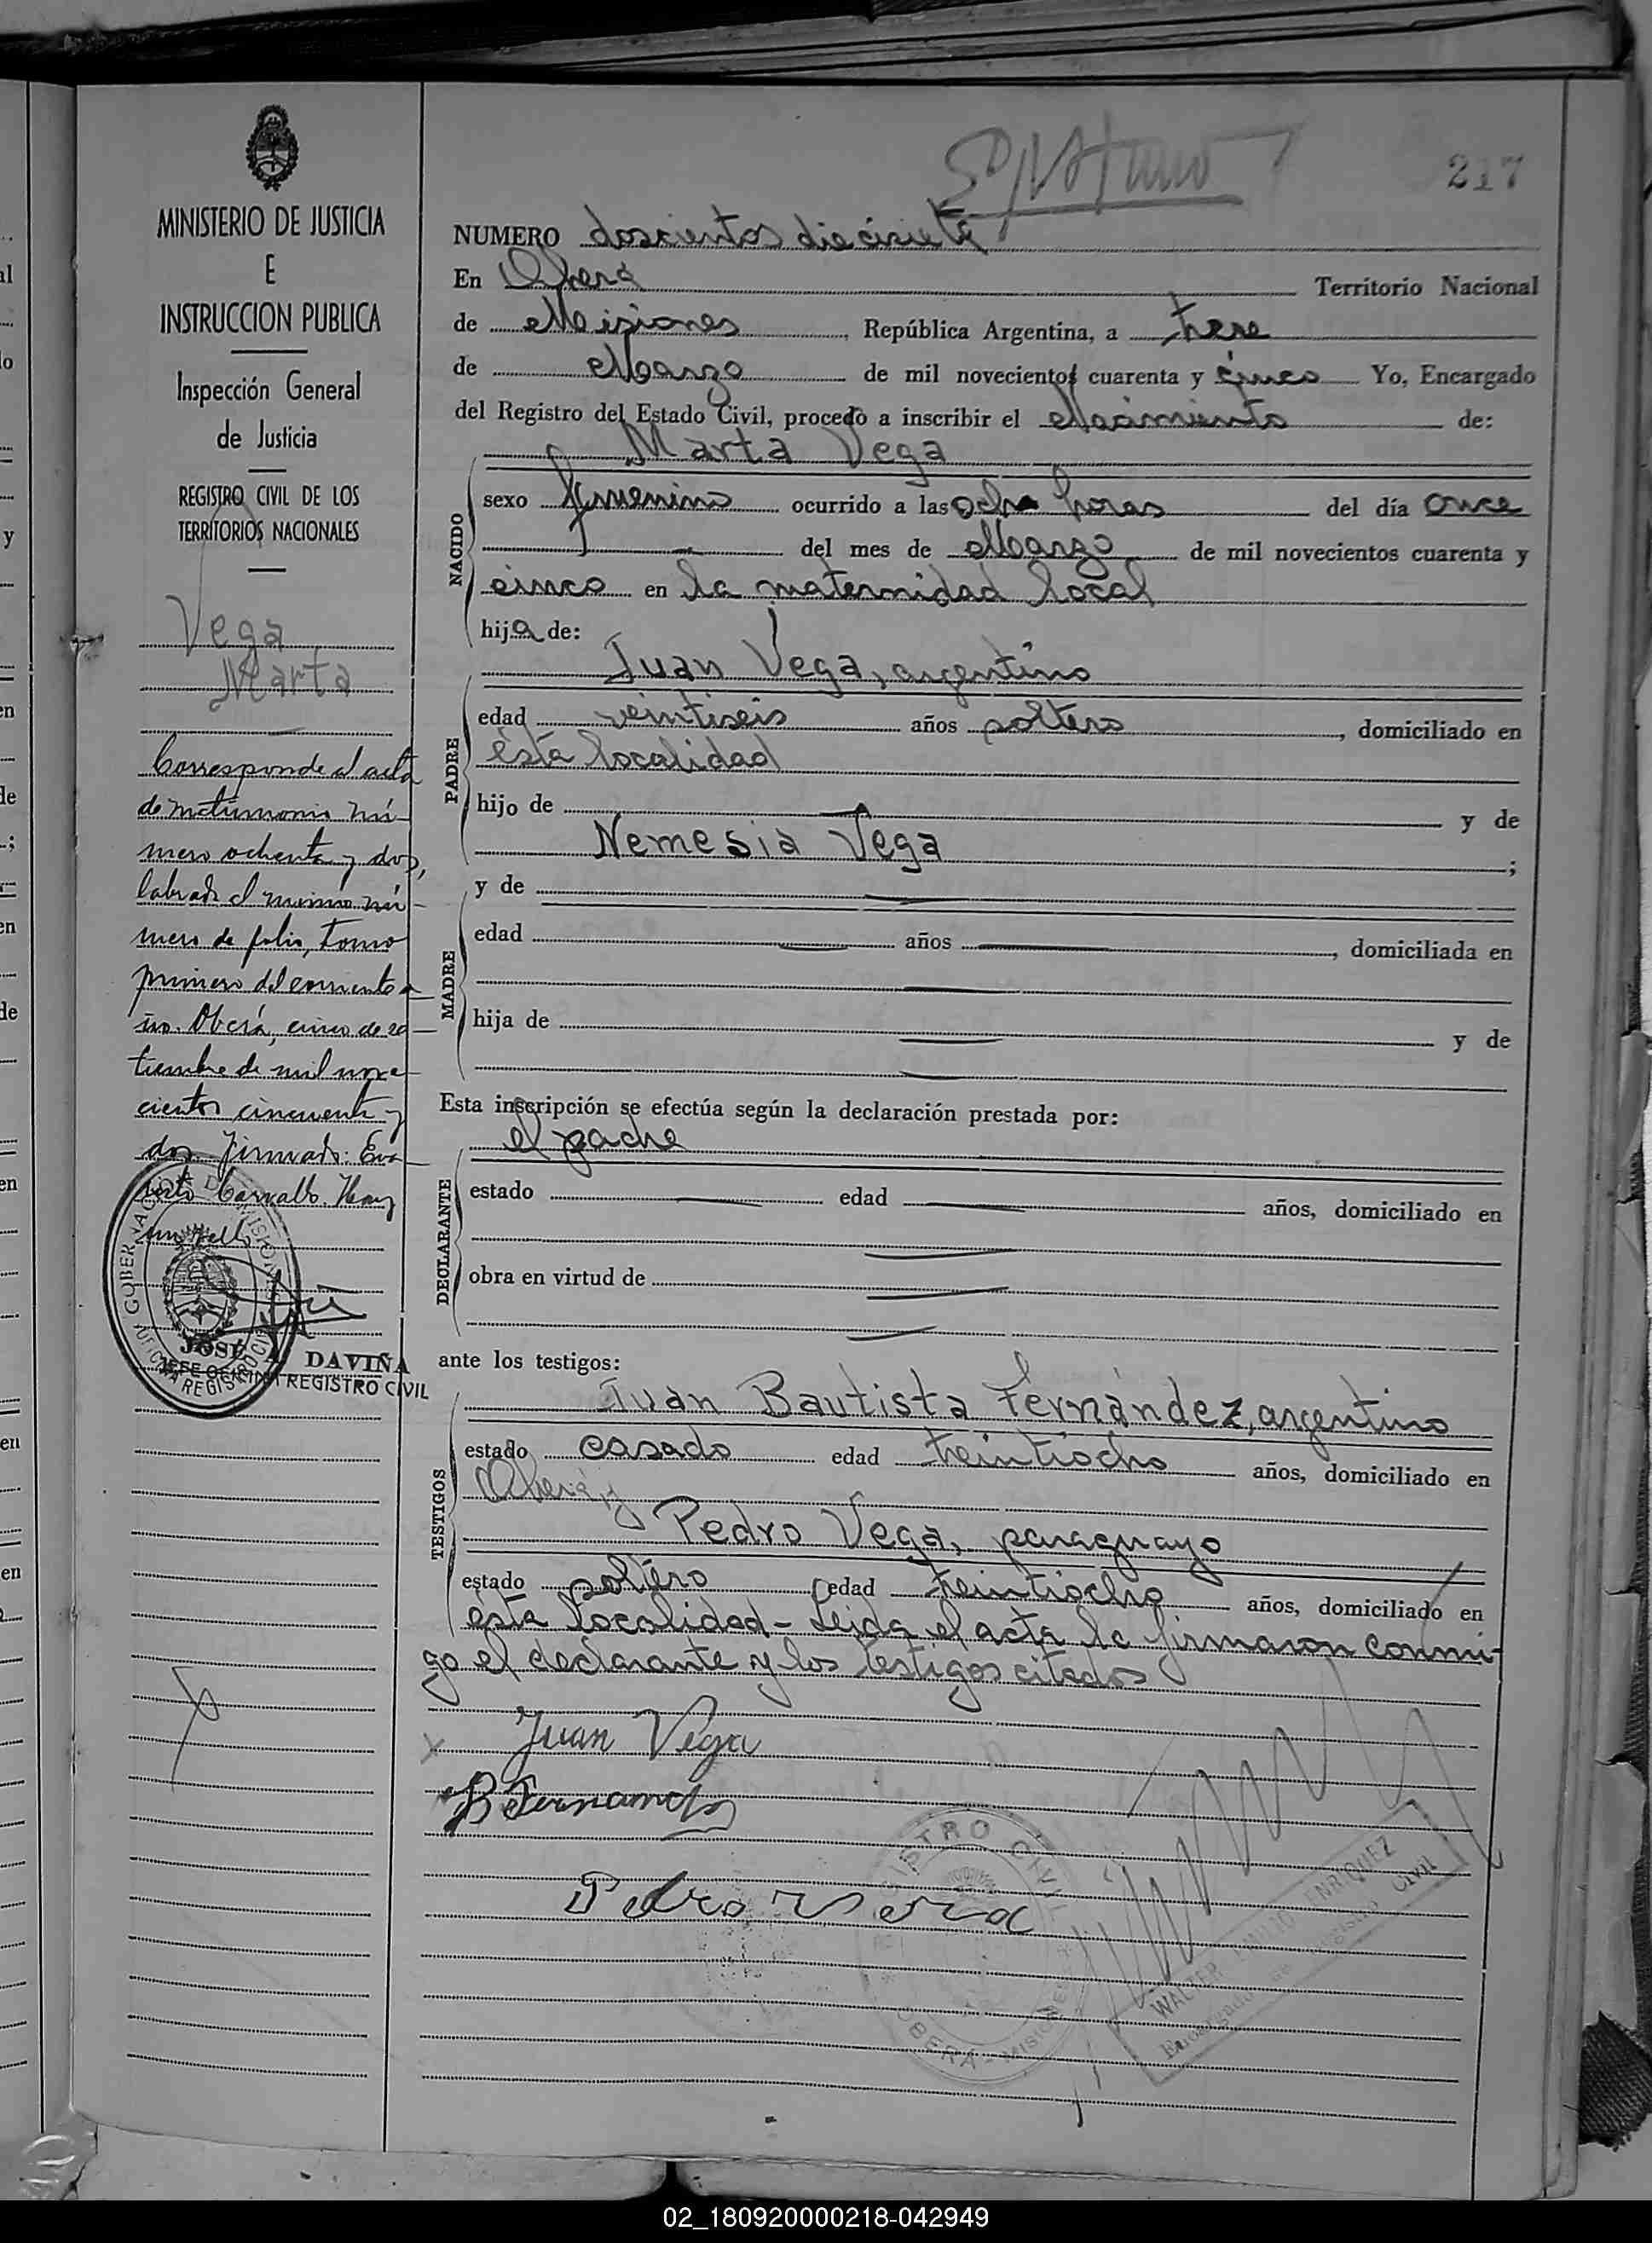 217
MINISTERIO DE JUSTICIA
E
INSTRUCCION PUBLICA
Inspección General
de Justicia
REGISTRO CIVIL DE LOS
TERRITORIOS NACIONALES
Vega
Marta
Corresponde al acta
de matrimonio nú-
mero ochenta y dos,
labrada el mismo nú-
mero de folio, tomo
primero del corriente a-
ño. Oberá, cinco de se-
tiembre de mil nove-
cientos cincuenta y
dos. Firmado: Eva-
risto Carvallo. Hay
un sello
GOBERNACION DE MISIONES
OFICINA REGISTRO CIVIL
JOSE A. DAVIÑA
JEFE OFICINA REGISTRO CIVIL
NUMERO doscientos diecisiete
En Oberá Territorio Nacional
de Misiones, República Argentina, a trece
de Marzo de mil novecientos cuarenta y cinco Yo, Encargado
del Registro del Estado Civil, procedo a inscribir el Nacimiento de:
Marta Vega
NACIDO
sexo femenino ocurrido a las ocho horas del día once
del mes de Marzo de mil novecientos cuarenta y
cinco en la maternidad local
hija de:
Juan Vega, argentino
PADRE
edad veintiseis años soltero, domiciliado en
ésta localidad
hijo de y de
Nemesia Vega;
MADRE
y de
edad años , domiciliada en
hija de y de
Esta inscripción se efectúa según la declaración prestada por:
el padre
DECLARANTE
estado edad años, domiciliado en
obra en virtud de
ante los testigos:
Juan Bautista Fernández, argentino
TESTIGOS
estado casado edad treintiocho años, domiciliado en
Oberá y
Pedro Vega, paraguayo
estado soltero edad treintiocho años, domiciliado en
ésta localidad - Leida el acta la firmaron conmi-
go el declarante y los testigos citados
Juan Vega
B Fernandez
Pedro Vera
REGISTRO CIVIL
OBERA - MISIONES
WALTER EMILIO ENRIQUEZ
Encargado de Registro Civil
02_180920000218-042949